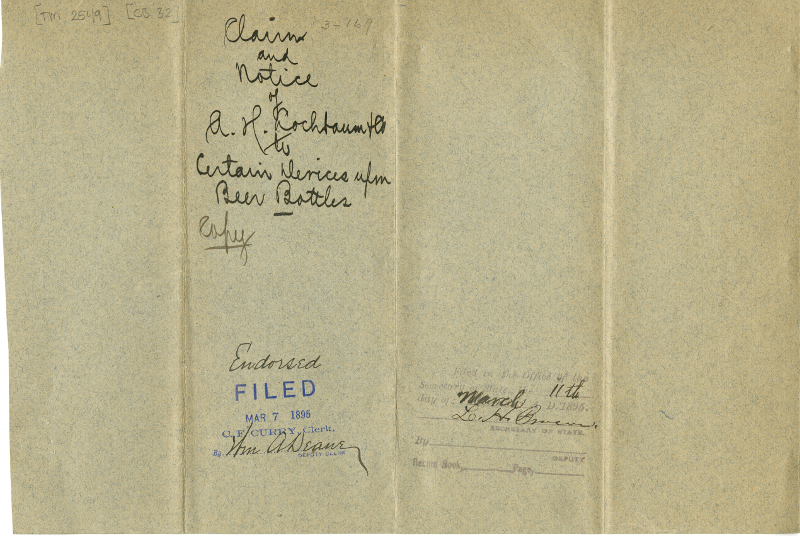 [TM 2549] [CB 32]
3-769
Claim
and
Notice
of
A. H. Lochbaum & Co
to
Certain Devices upon
Beer Bottles
Copy
Endorsed
FILED
MAR 7 1895
C. F. CURRY, Clerk.
By Wm A Deane
DEPUTY CLERK
Filed in the Office of the
Secretary of State, the 11th
day of March A. D. 1895.
L. H. Brown
SECRETARY OF STATE.
By
DEPUTY
Record Book, Page,